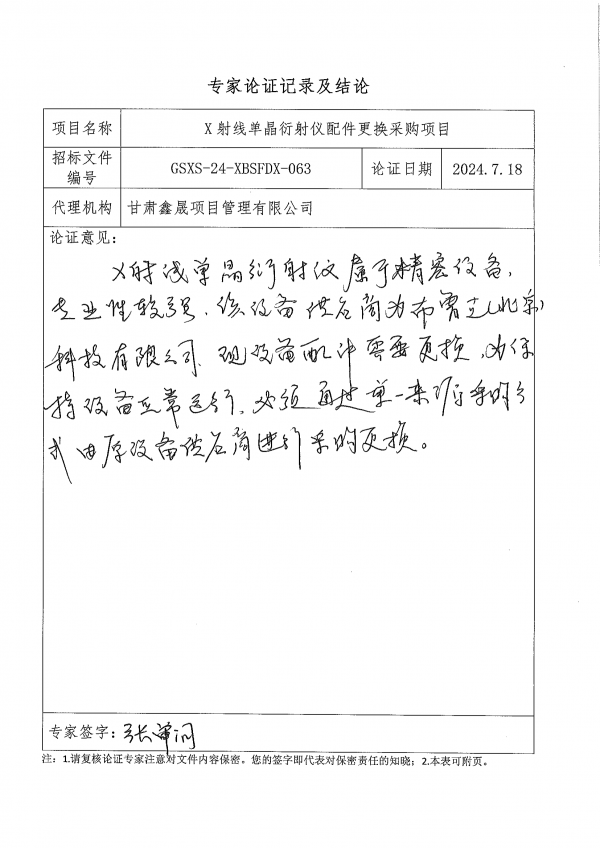 专家论证记录及结论
项目名称 X射线单晶衍射仪配件更换采购项目
招标文件编号 GSXS-24-XBSFDX-063 论证日期 2024.7.18
代理机构 甘肃鑫晟项目管理有限公司
论证意见：
X射线单晶衍射仪属于精密设备，
专业性较强，该设备供应商为布鲁克(北京)
科技有限公司，现设备配件需要更换，为保
持设备正常运行，必须通过单一来源采购方
式由原设备供应商进行采购更换。
专家签字：张
注：1.请复核论证专家注意对文件内容保密。您的签字即代表对保密责任的知晓；2.本表可附页。